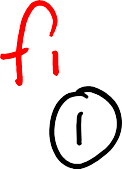 fi
1